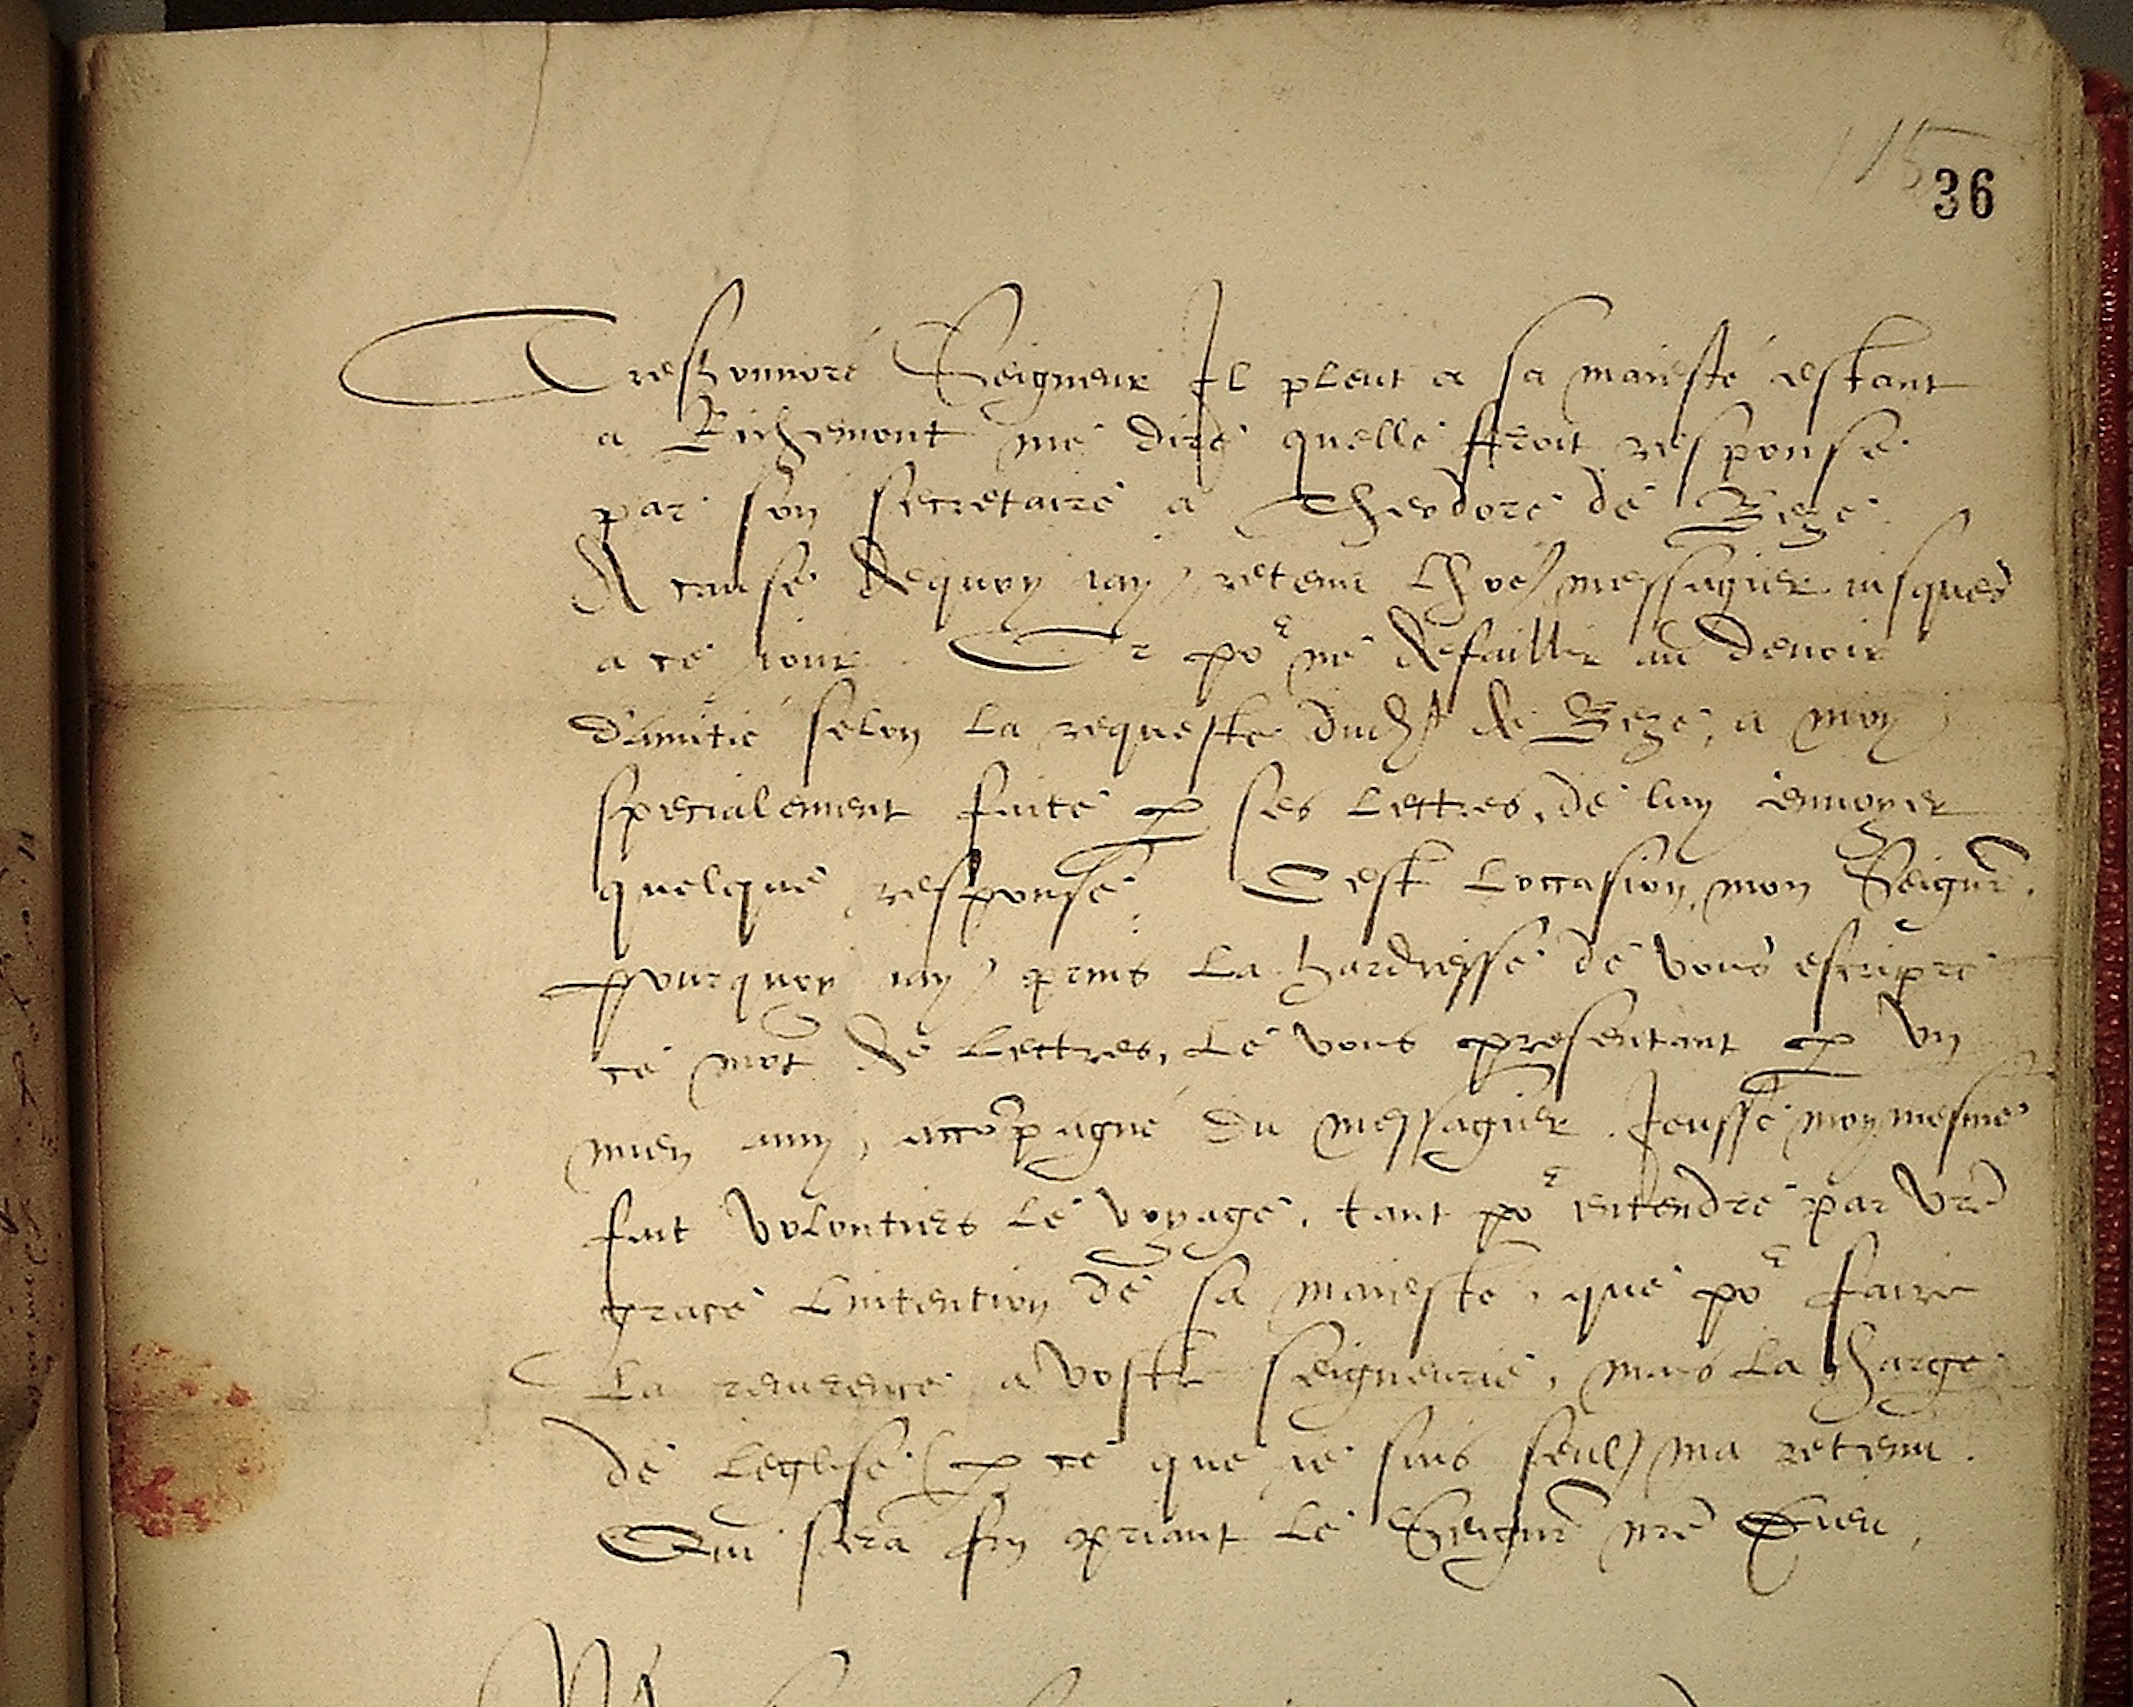 115
36
Treshonnoré Seigneur Il pleut a sa maiesté estant
a Richemont me dire quelle feroit response
par son secretaire a Theodore de Beze
A cause dequoy iay retenu messagier iusques
a ce iour. Et poʳ ne defaillir au devoir
d'amitié selon la requeste dudᵗ de Beze, a moy
specialement faite p ses lettres, de luy enuoyer
quelque response. Cest loccasion, mon Seignr̃.
pourquoy iay prins la hardiesse de vous escripre
ce mot de lettres, le vous presentant p vn
mien amy, accõpagné du messagier. Jeusse moymesme
fait volontiers le voyage, tant poʳ entendre par vrẽ
grace lintention de sa maiesté, que poʳ faire
la reuerence a vostre seigneurie, mais la charge
de leglise (p ce que ie suis seul) ma retenu.
Qui sera fin priant le Seignr̃ nrẽ Dieu,